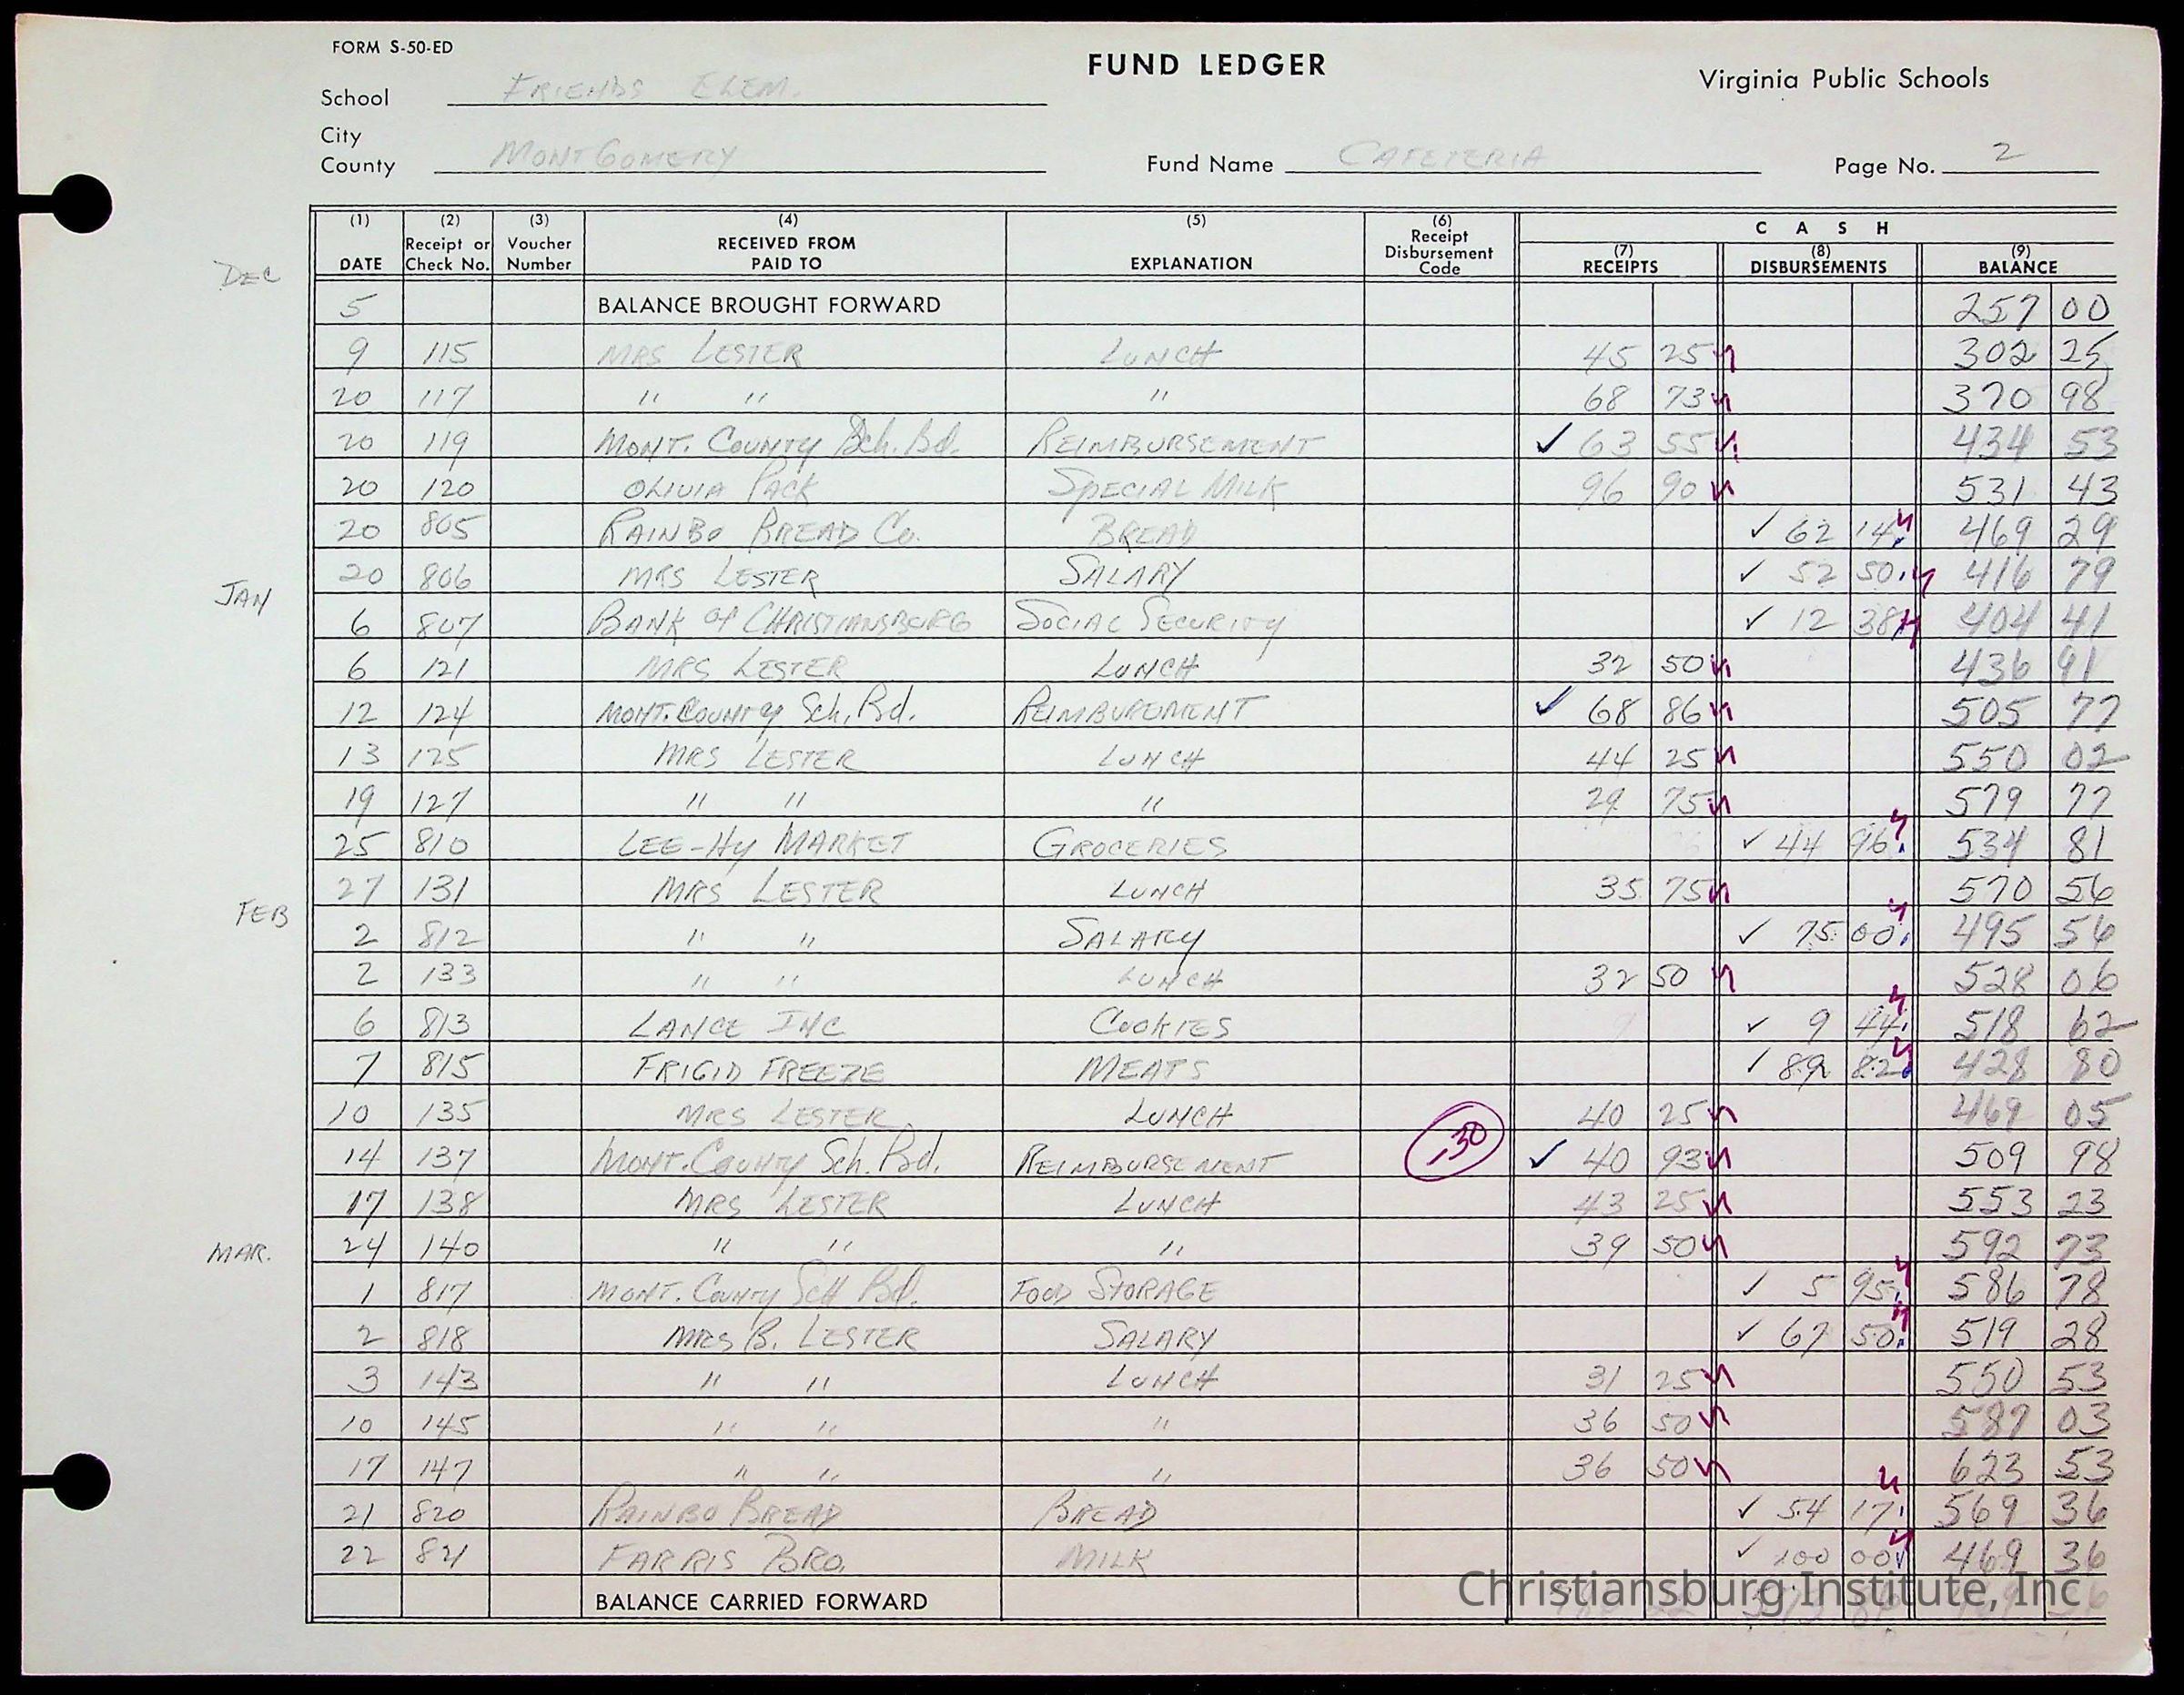 FORM S-50-ED
FUND LEDGER
Virginia Public Schools
School FRIENDS ELEM.
City
County MONTGOMERY
Fund Name CAFETERIA
Page No. 2
(1) (2) (3) (4) (5) (6) C A S H
DATE Receipt or Check No. Voucher Number RECEIVED FROM PAID TO EXPLANATION Receipt Disbursement Code (7) RECEIPTS (8) DISBURSEMENTS (9) BALANCE
DEC
5 BALANCE BROUGHT FORWARD 257 00
9 115 MRS LESTER LUNCH 45 25 302 25
20 117 " " " 68 73 370 98
20 119 MONT. COUNTY Sch. Bd. REIMBURSEMENT ✓ 63 55 434 53
20 120 OLIVIA PACK SPECIAL MILK 96 90 531 43
20 805 RAINBO BREAD Co. BREAD ✓ 62 14 469 29
20 806 MRS LESTER SALARY ✓ 52 50 416 79
JAN
6 807 BANK OF CHRISTIANSBURG SOCIAL SECURITY ✓ 12 38 404 41
6 121 MRS LESTER LUNCH 32 50 436 91
12 124 MONT. COUNTY Sch. Bd. REIMBUREMENT ✓ 68 86 505 77
13 125 MRS LESTER LUNCH 44 25 550 02
19 127 " " " 29 75 579 77
25 810 LEE-HY MARKET GROCERIES ✓ 44 96 534 81
27 131 MRS LESTER LUNCH 35 75 570 56
FEB
2 812 " " SALARY ✓ 75 00 495 56
2 133 " " LUNCH 32 50 528 06
6 813 LANCE INC COOKIES ✓ 9 44 518 62
7 815 FRIGID FREEZE MEATS ✓ 89 82 428 80
10 135 MRS LESTER LUNCH 40 25 469 05
14 137 MONT. COUNTY Sch. Bd. REIMBURSEMENT -30 ✓ 40 93 509 98
17 138 MRS LESTER LUNCH 43 25 553 23
24 140 " " " 39 50 592 73
MAR.
1 817 MONT. COUNTY SCH Bd. FOOD STORAGE ✓ 5 95 586 78
2 818 MRS B. LESTER SALARY ✓ 67 50 519 28
3 143 " " LUNCH 31 25 550 53
10 145 " " " 36 50 587 03
17 147 " " " 36 50 623 53
21 820 RAINBO BREAD BREAD ✓ 54 17 569 36
22 821 FARRIS BRO. MILK ✓ 100 00 469 36
BALANCE CARRIED FORWARD
Christiansburg Institute, Inc